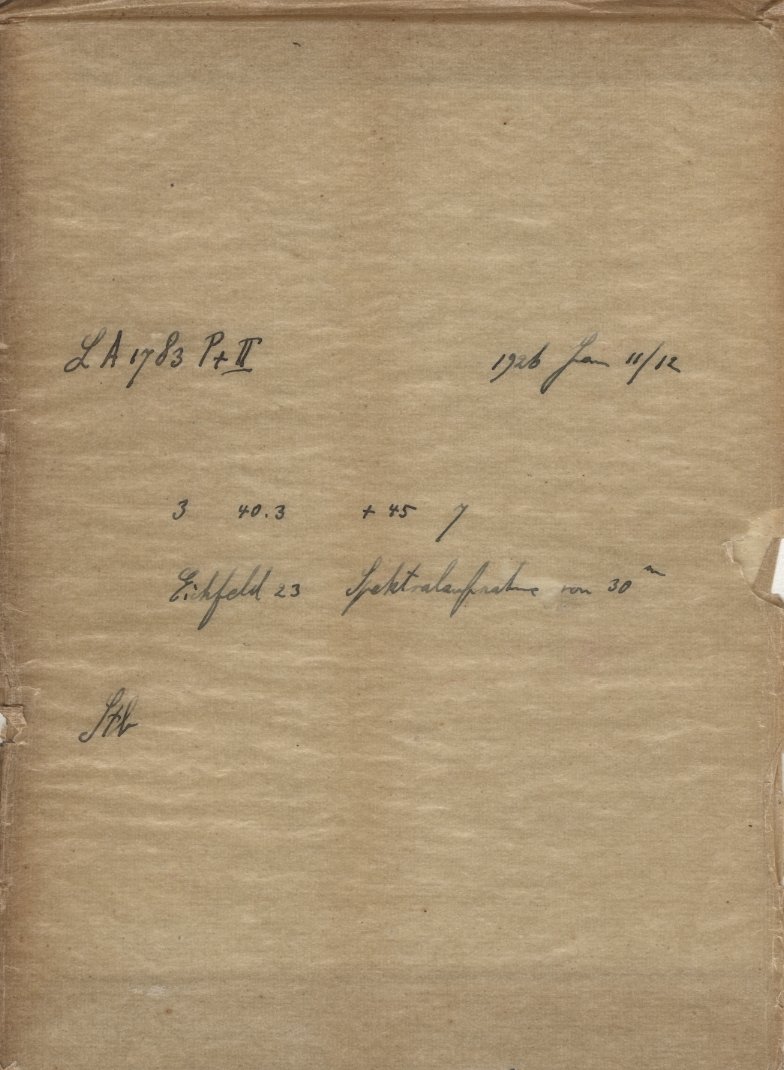 LA 1783 P+II 1926 Jan 11/12
3 40.3 +45 7
Eichfeld 23 Spektralaufnahme von 30ᵐ
Stb